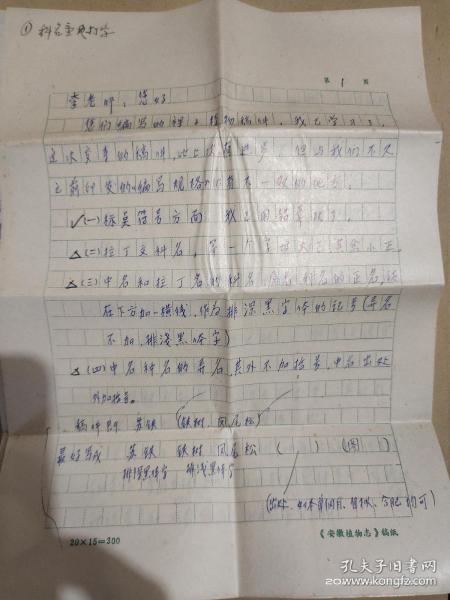 ① 科名重复打字
第 1 页
李老师：您好
您们编写的裸子植物稿件，我已学习了，
这次寄来的稿件，比上次有进步，但与我们不久
之前印发的《编写规格》还有不一致的地方，
(一)标点符号方面 我已用铅笔改了。
(二)拉丁文科名，第一个字母大写其余小写。
(三)中名和拉丁名的科名、属名、种名的正名，请
在下方加一横线，作为排深黑字体的记号(异名
不加，排浅黑体字)
(四)中名种名的异名，其外不加括号，中名出处
外加括号。
稿件即 苏铁 (铁树 凤尾松)
最好写成 苏铁 铁树 凤尾松 ( ) (图 )
排深黑体字 排浅黑体字
(出处，如本草纲目、
20×15=300
《安徽植物志》稿纸
孔夫子旧书网